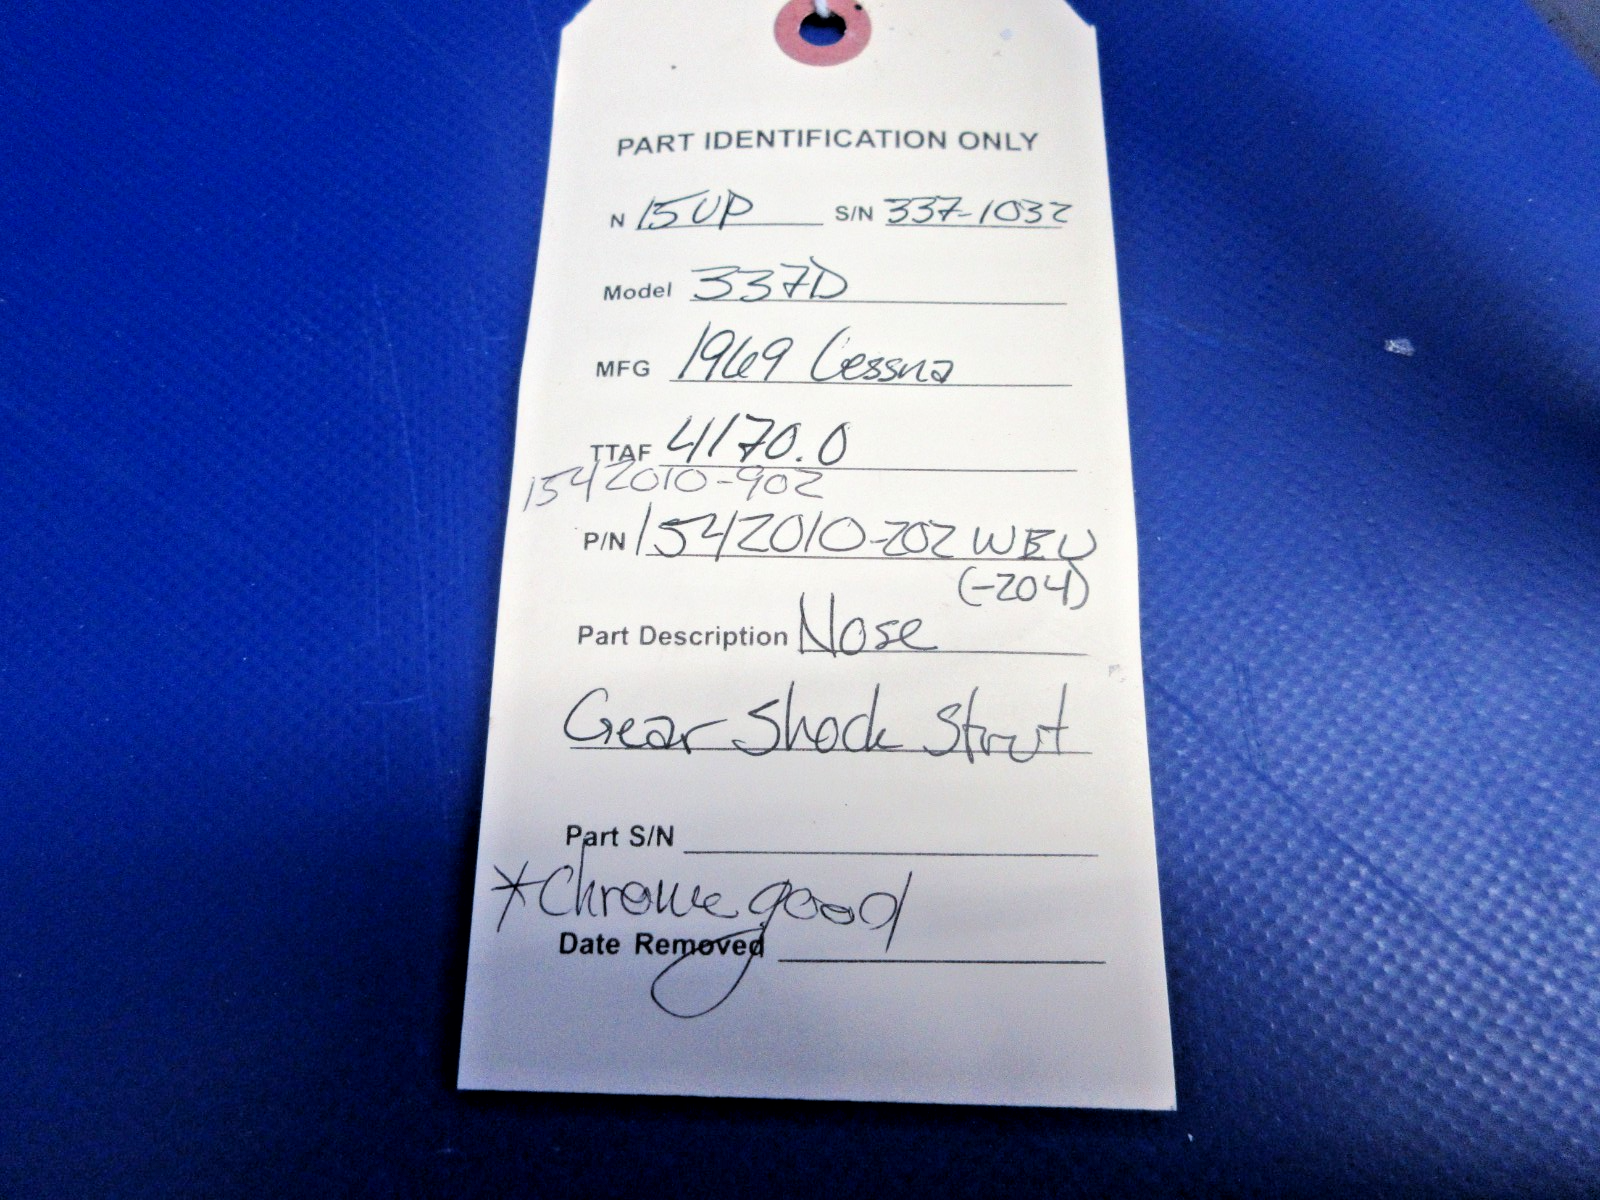 PART IDENTIFICATION ONLY
N 15UP S/N 337-1032
Model 337D
MFG 1969 Cessna
TTAF 4170.0
1542010-902
P/N 1542010-202 WEU
(-204)
Part Description Nose
Gear Shock Strut
Part S/N
*Chrome good
Date Removed